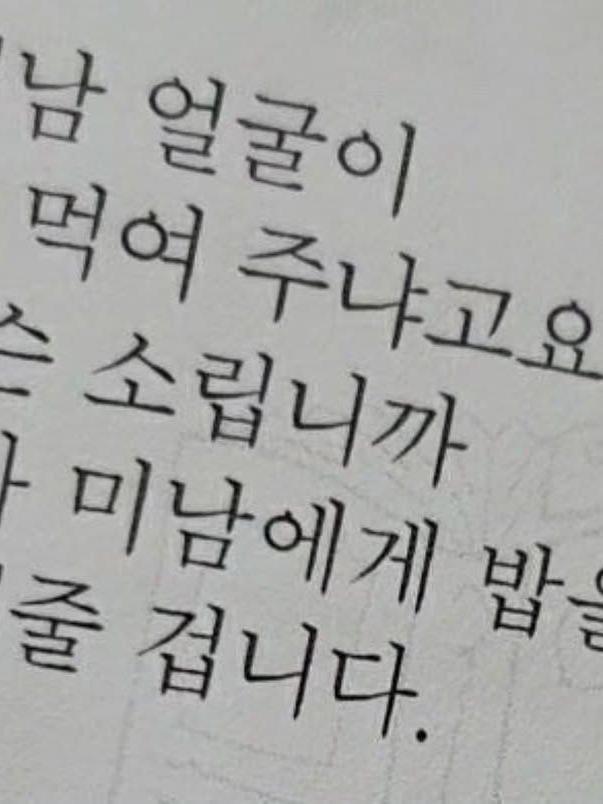 남 얼굴이
먹여 주냐고요
소립니까
미남에게 밥을
줄 겁니다.